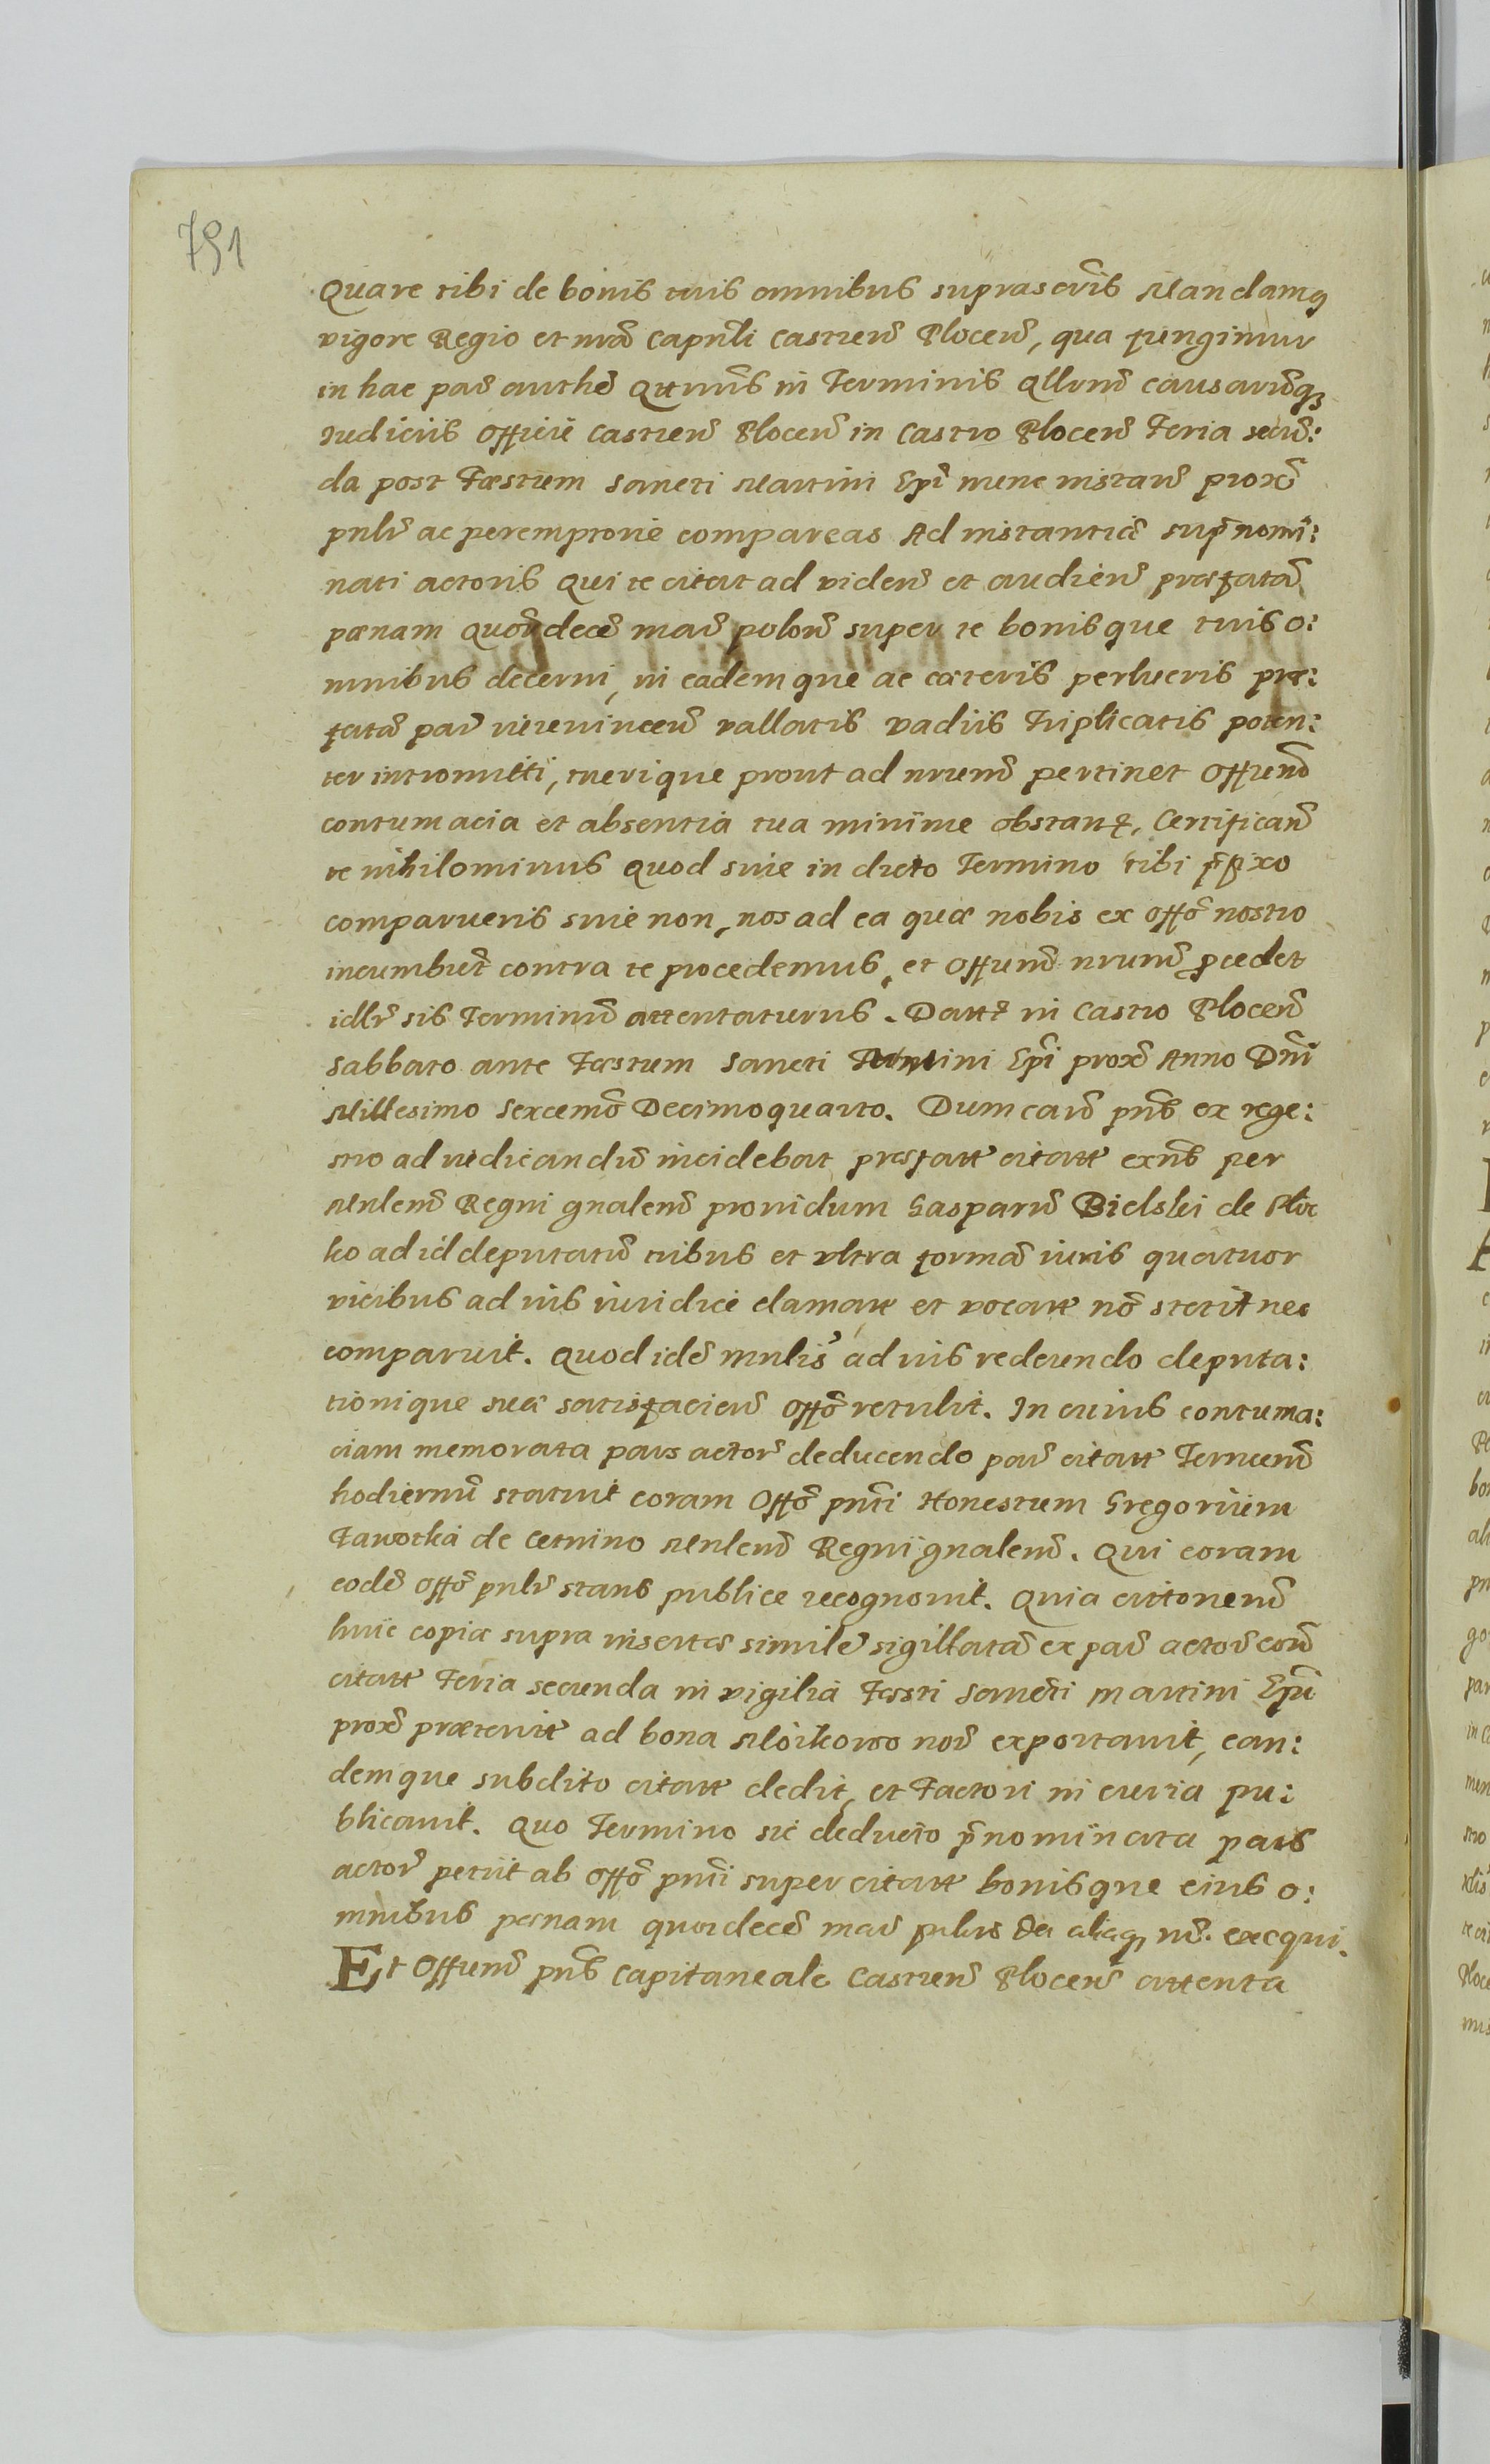 791
Quare tibi de bonis tuis omnibus suprascriis Mandamq
vigore Regio et nrã Capnli Castren Plocen, qua fungimur
in hac par authe Qtnus in Terminis Qllrum causarumq
Iudiciis Officii Castren Plocen in Castro Plocen Feria secun:
da post Fæstum Sancti Martini Epi nunc instan prox
pnlr ac peremptorie compareas Ad instantia supnomi:
nati actoris Qui te citat ad viden et audien præfatã
pænam Quordecē mar polon super te bonisque tuis o:
mnibus decerni, in eademque ac cæteris perlucris præ:
fatã par Iureuincen vallatis vadiis Triplicatis poten:
ter intromitti, tuerique prout ad nrum pertinet Offum
contumacia et absentia tua minime obstan, Certifican
te nihilominus Quod siue in dicto Termino tibi pfixo
comparueris siue non, nos ad ea quæ nobis ex Offo nostro
incumbut contra te procedemus, et Offum nrum pcedet
idlr sis Terminu attentaturus. Datt in Castro Plocen
Sabbato ante Fæstum Sancti Martini Epi prox Anno Dni
Millesimo Sexcemo Decimoquarto. Dum cau pns ex rege:
stro ad iudicandu incidebat præfatt citatt exns per
Mnlem Regni gnalem prouidum Gasparu Bielski de Ploc
ko ad id deputatu tribus et vltra formã iuris quatuor
vicibus ad ius iuridice clamatt et vocatt nō stetit nec
comparuit. Quod idē mnlis ad ius redeundo deputa:
tionique suæ satisfacien Offo retulit. In cuius contuma:
ciam memorata pars actor deducendo par citatt Termum
hodiernu statuit coram Offo pnti Honestum Gregorium
Fawotka de Cetnino Mnlem Regni gnalem. Qui coram
eodē Offo pnlr stans publice recognouit. Quia citonem
huic copiæ supra insertæ simile sigillatã ex par actor con
citatt Feria secunda in vigilia Fæsti Sancti Martini Epi
prox præterite ad bona Mloikowo nov exportauit, ean:
demque subdito citatt dedit, et Factori in curia pu:
blicauit. Quo Termino sic deducto pnominata pars
actor petiit ab Offo pnti super citatt bonisque eius o:
mnibus pænam quordecē mar pulns aliaq exequi.
Et Offum pns Capitaneale Castren Plocen attenta